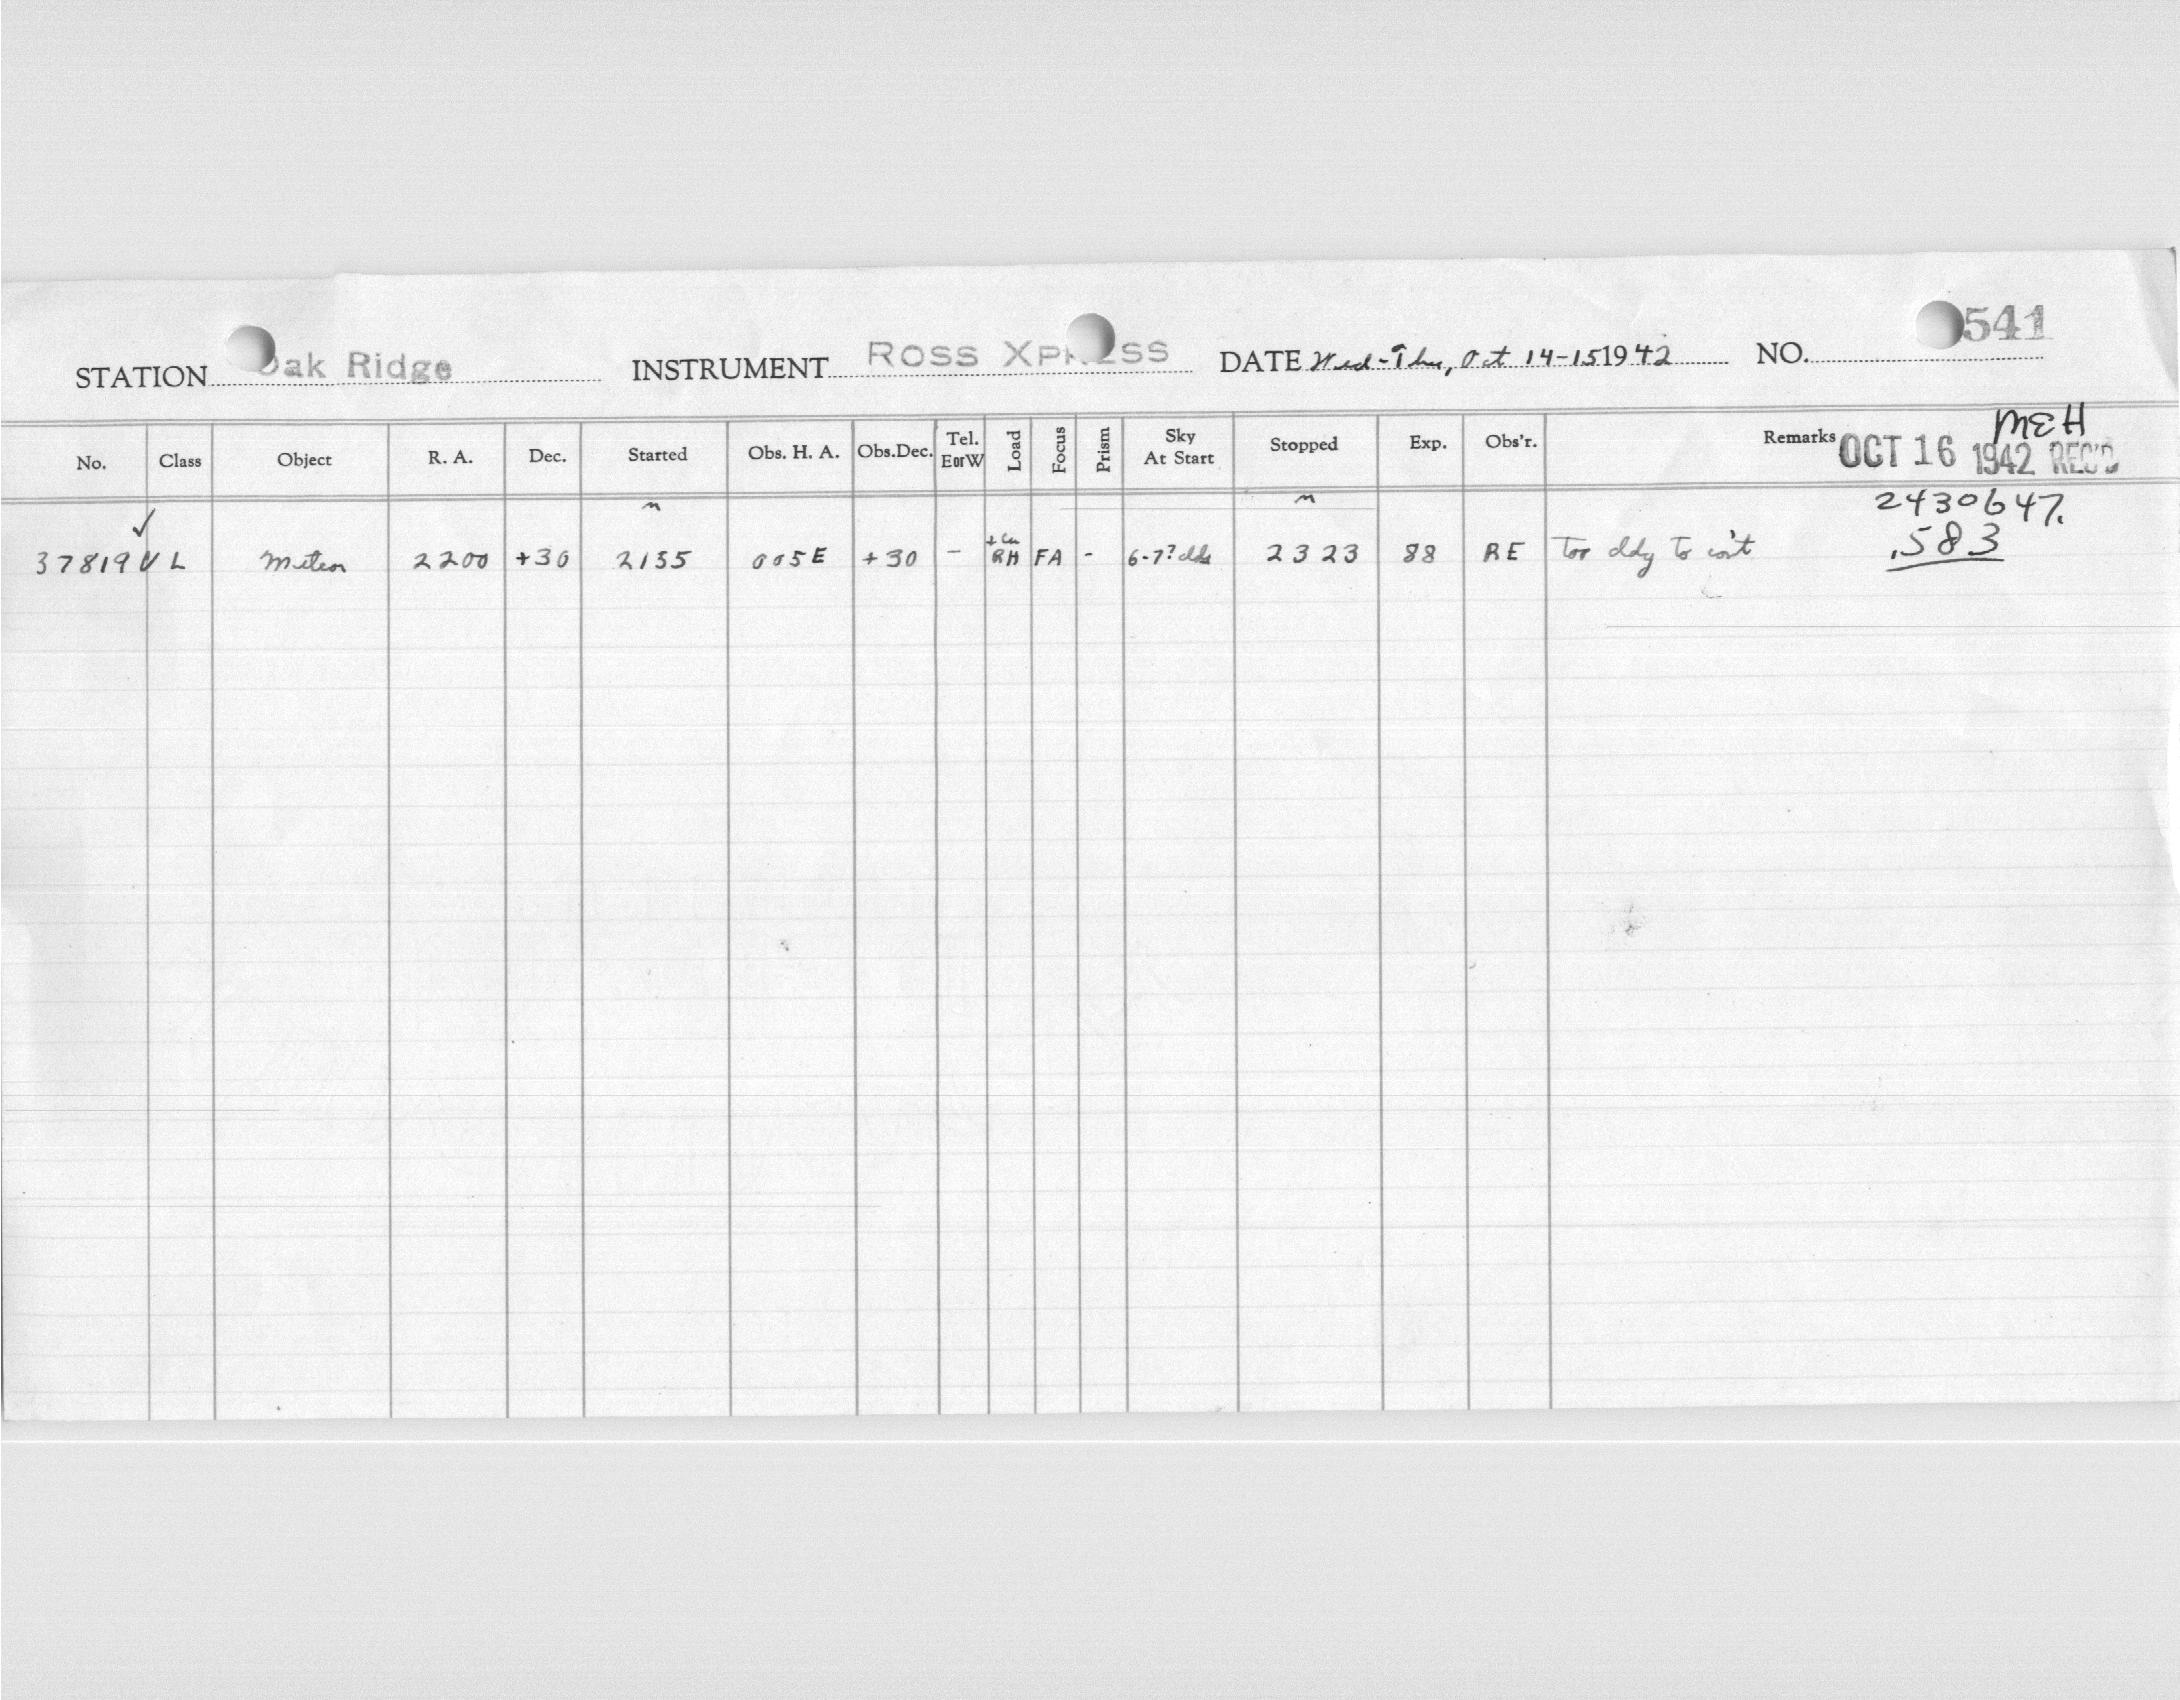 541
STATION Oak Ridge INSTRUMENT ROSS XPRESS DATE Wed-Thu, Oct 14-15 1942 NO.
MEH
No. Class Object R. A. Dec. Started Obs. H. A. Obs.Dec. Tel. E or W Load Focus Prism Sky At Start Stopped Exp. Obs'r. Remarks OCT 16 1942 REC'D
2430647.
.583
37819 ✓ L Meteor 2200 +30 2155 005E +30 - RH FA - 6-7? clds 2323 88 RE Too cldy to con't